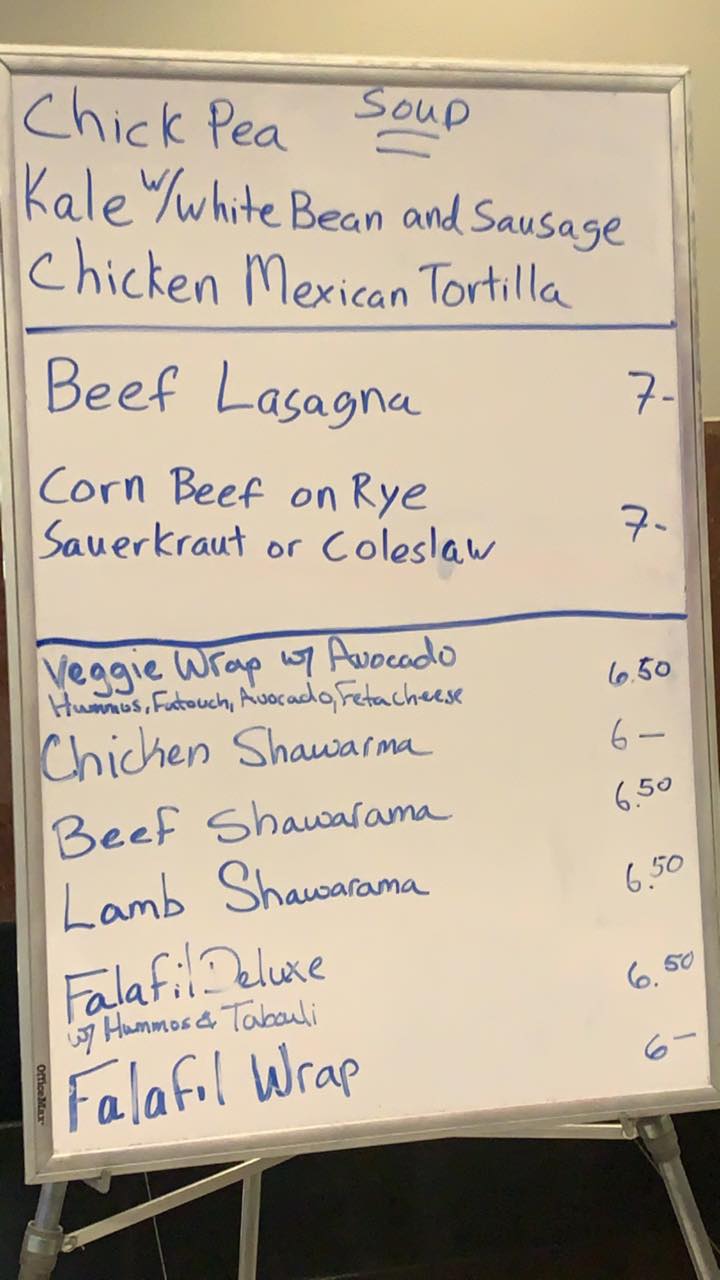 Chick Pea Soup
Kale w/white Bean and Sausage
Chicken Mexican Tortilla
Beef Lasagna 7-
Corn Beef on Rye
Sauerkraut or Coleslaw 7-
Veggie Wrap w/ Avocado 6.50
Hummos, Fatouch, Avocado, Feta cheese
Chicken Shawarma 6-
Beef Shawarama 6.50
Lamb Shawarama 6.50
Falafil Deluxe 6.50
w/ Hummos & Tabouli
Falafil Wrap 6-
OfficeMax